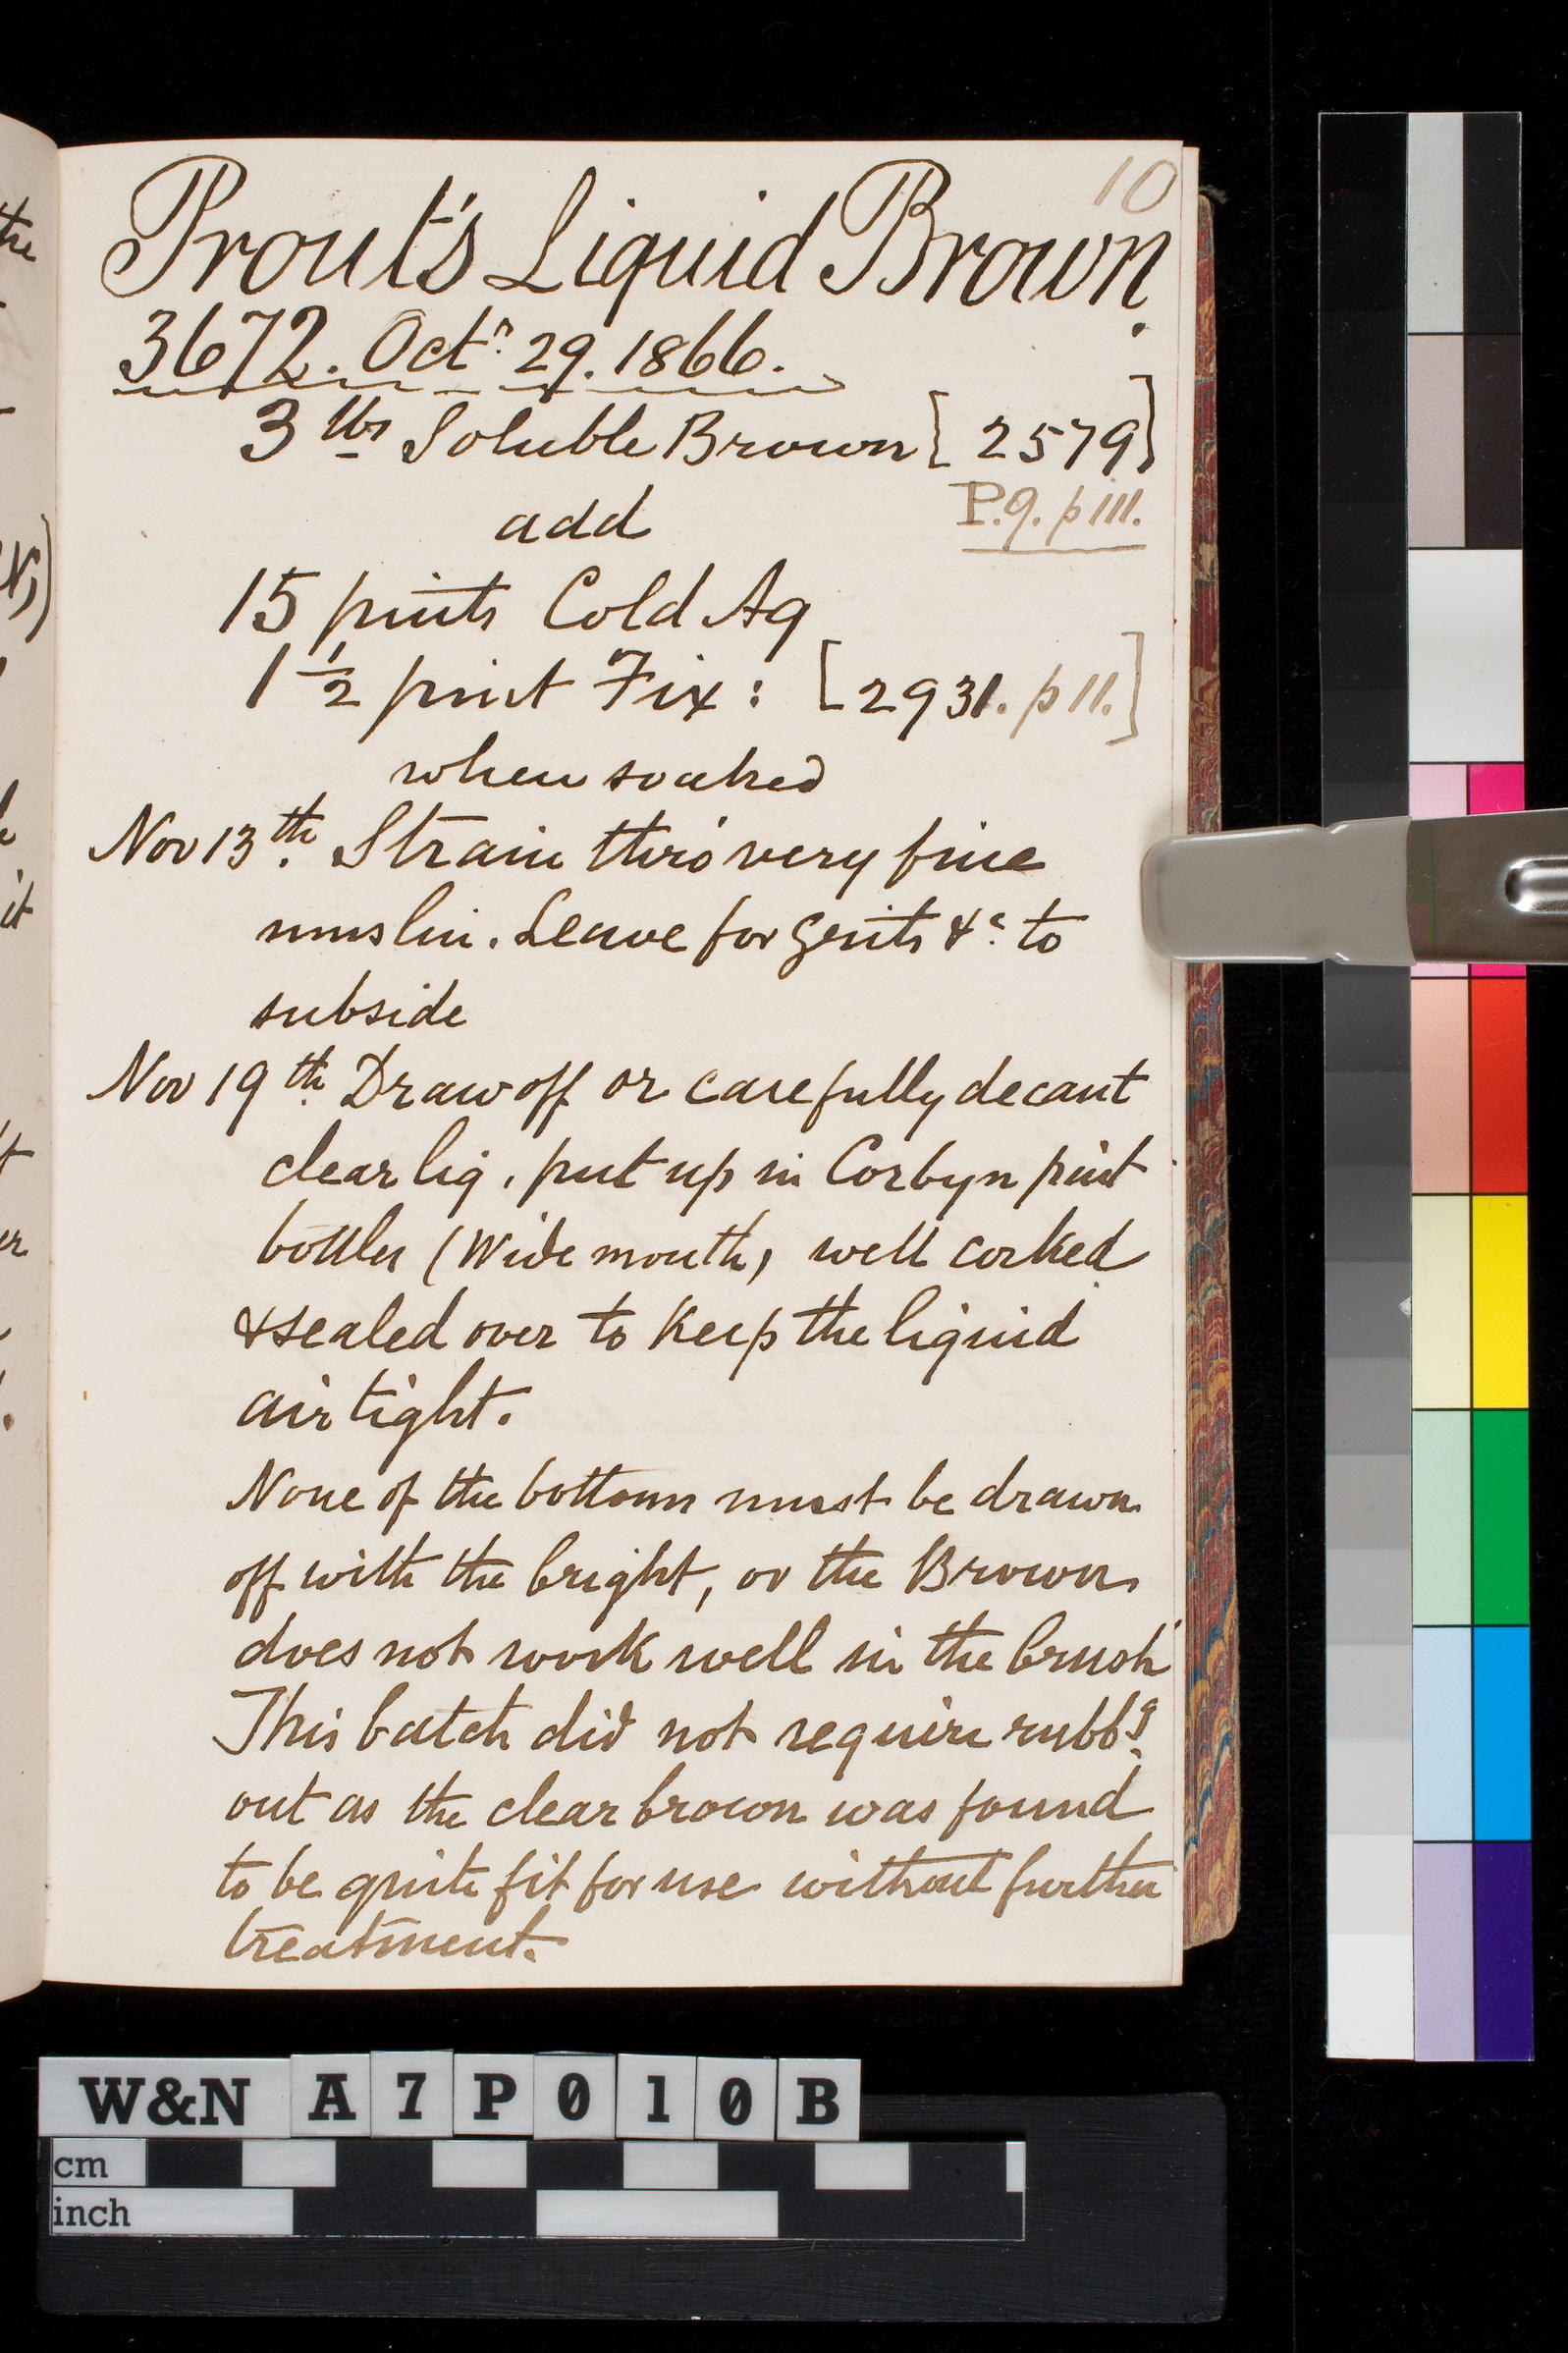 10
Prout's Liquid Brown.
3672. Octr 29. 1866.
3 lbs Soluble Brown [2579]
P.9. p111.
add
15 pints Cold Aq
1 1/2 pint Fix: [2931. p11.]
when soaked
Nov 13th. Strain thro' very fine
muslin. Leave for grits &c to
subside
Nov 19th. Draw off or carefully decant
clear liq. put up in Corbyn pint
bottles (Wide mouth) well corked
& sealed over to Keep the liquid
air tight.
None of the bottoms must be drawn
off with the bright, or the Brown
does not work well in the brush
This batch did not require rubbg
out as the clear brown was found
to be quite fit for use without further
treatment.
W&N A7P010B
cm
inch